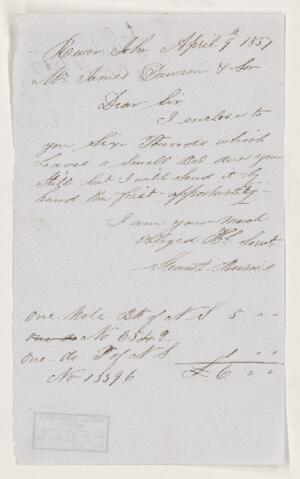 River John April 9th 1857
Mr James Dawson & Son
Dear Sir
I enclose to
you six Pounds which
Leaves a Small Bal due you
Still but I will Send it by
hand the first opportunity
I am your much
obliged Sert
Stewart Burns
One Note Bk of N S 5 " "
No 6542
One do P of N S 1 " "
No 13396 £6 " "